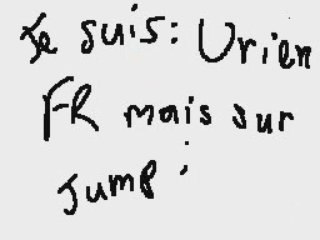 Je suis: Urien
FR mais sur
Jump :